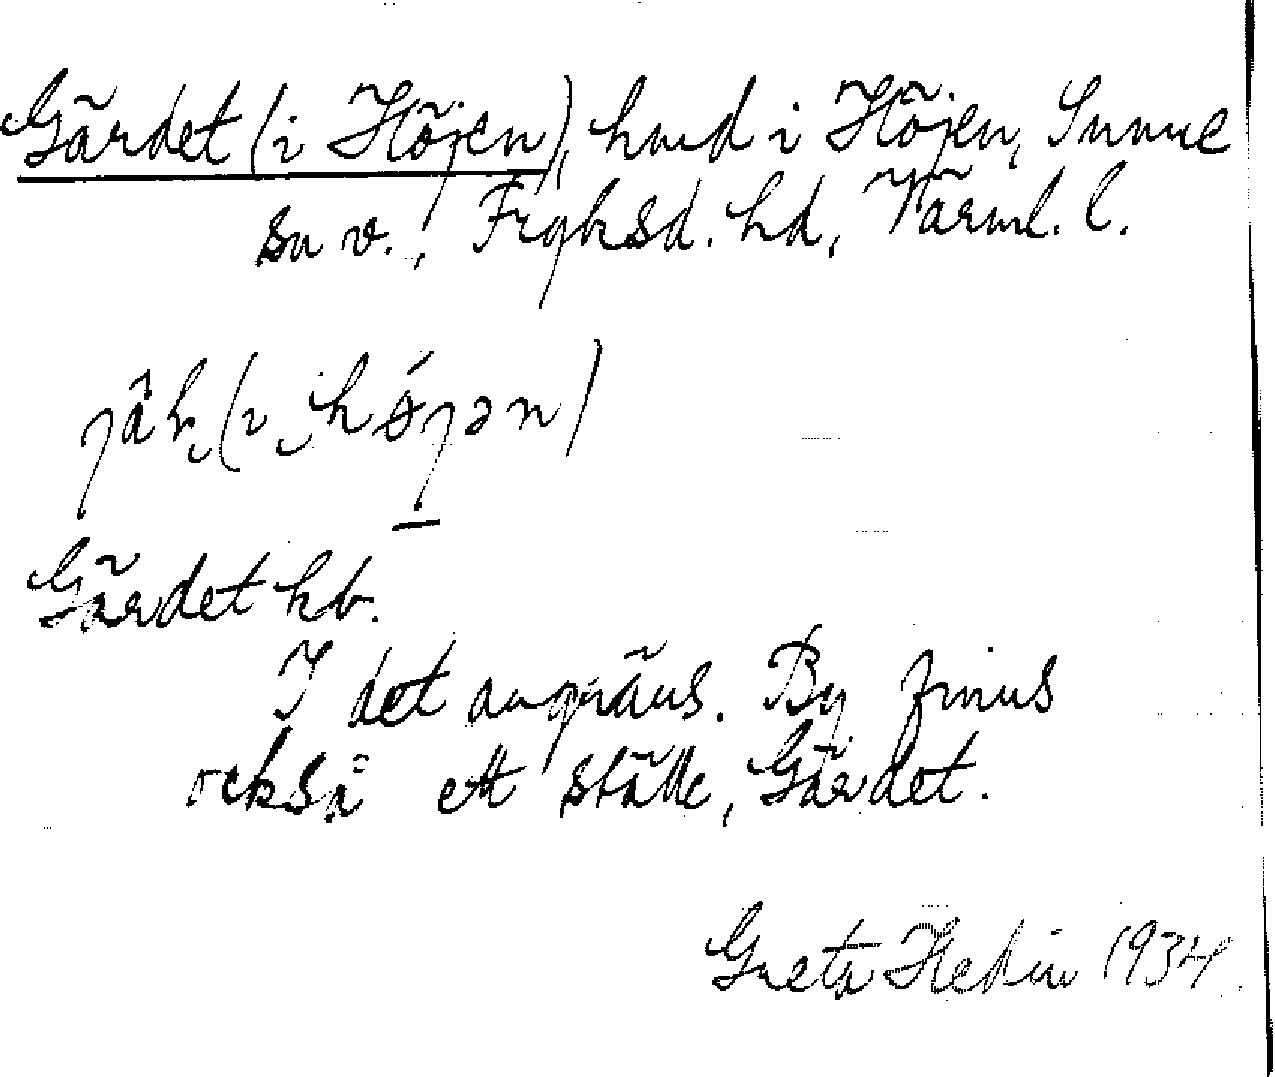 Gärdet (i Höjen), hmd i Höjen, Sunne
sn v., Fryksd. hd, Värml. l.
(i höjən)
Gärdet hb.
I det angräns. By finns
också ett ställe, Gärdet.
Greta Hedin 1934.